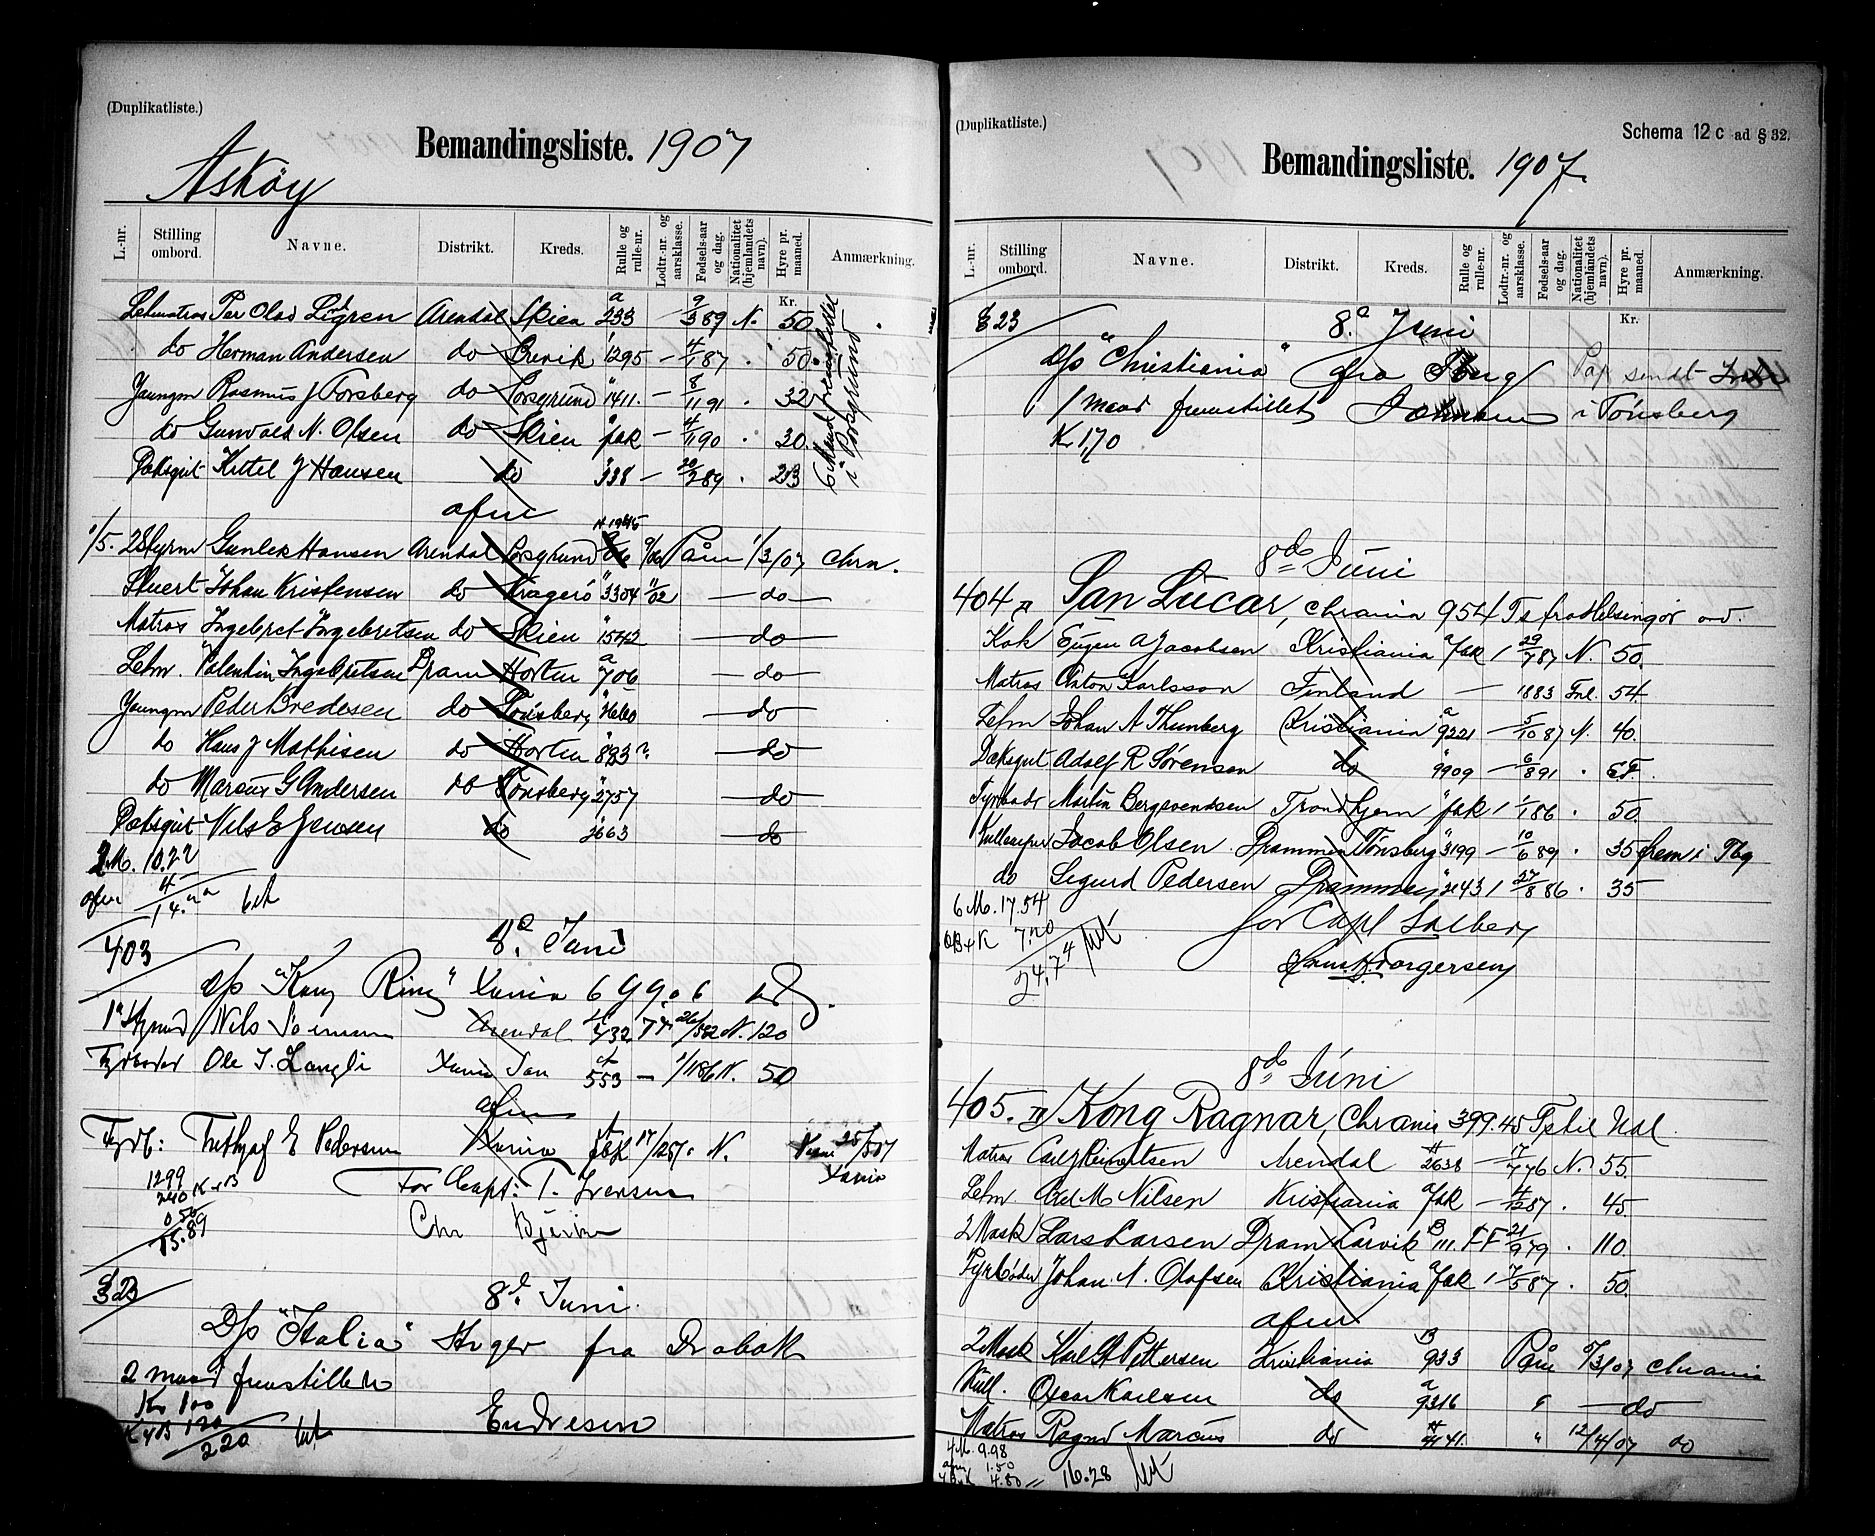 (Duplikatliste.)
Bemandingsliste. 1907
Askøy
L.-nr. Stilling ombord. Navne. Distrikt. Kreds. Rulle og rulle-nr. Lodtr.-nr. og aarsklasse. Fødsels-aar og dag. Nationalitet (hjemlandets navn). Hyre pr. maaned. Anmærkning.
Kr.
Letmatros Per Olav Ligren Arendal Skien a 233 — 9/3 89 N. 50
do Herman Andersen do Brevik " 1295 — 4/1 87 . 50
Jungm Rasmus J Forsberg do Porsgrund " 1411 — 8/11 91 . 32
do Gunvald N. Olsen do Skien " fak — 4/1 90 . 30
Dæksgut Kittel J Hansen do " 338 — 20/2 89 . 23
6 Mand fremstillet i Porsgrund
afm
1/5. 2 Styrm Gunler Hansen Arendal Porsgrund Paam 1/3/07 Chra.
Stuert Johan Kristensen do Kragerö " 3304 "/02 — do —
Matros Ingebret Ingebretsen do Skien " 1542 — do —
Letm. Valentin Ingebretsen Dram Horten a 706 — do —
Jungm Peder Bredesen do Tönsberg — do —
do Hans J Mathisen do Horten " 893 — do —
do Marcus G Andersen do Tönsberg " 2757 — do —
Dæksgut Nils E Jensen do " 2663 — do
M. 10.22
afm 4
14.22 bet
403 8de Juni
D/S "Kong Ring" Xania 699.06
1ste Styrmd Nils Arendal 732 26/5 82 N. 120
Fyrbøder Ole J. Langli Xania A 553 — 1/1 86 N. 50
afm
Fyrb: Frithjof E Pedersen Xania A fak 17/12 87 . N. 25/5 07 Xania
1299
240 K+B
050
15.89
For Capt: T. Iversen
Chr Bjerke
323 8de Juni
D/S "Italia" fra Drøbak
2 mand fremstillede
Kr 100
K+B 120
220 bet
Endresen
(Duplikatliste.)
Schema 12 c ad § 32.
Bemandingsliste. 1907.
L.-nr. Stilling ombord. Navne. Distrikt. Kreds. Rulle og rulle-nr. Lodtr.-nr. og aarsklasse. Fødsels-aar og dag. Nationalitet (hjemlandets navn). Hyre pr. maaned. Anmærkning.
Kr.
323 8de Juni
D/S "Christiania" fra Tbrg Pap sendt
1 mand fremstillet Johnsen i Tönsberg
K 1,70
8de Juni
404 San Lucar, Chrania 954 Ts fra Helsingör
Kok Eugen A Jacobsen Kristiania a fak 1 29/7 87 N. 50.
Matros Anton Karlsson Finland — 1883 Fnl. 54
Letm Johan A Thunberg Kristiania a 9221 — 5/10 87 N. 40.
Dæksgut Adolf R Sørensen do " 9909 — 6/8 91 .
Fyrbødr Martin Bergsvendsen Trondhjem " fak 1 1/1 86 . 50.
Kullemper Jacob Olsen Drammen Tönsberg " 3199 — 10/6 89 . 35 frem i Tbg
do Sigurd Pedersen Drammen " 2143 1 27/8 86 . 35
6 M. 17.54
6B+K 7.20
24.74 bet
for Capt Salberg
Torgersen
8de Juni
405. Kong Ragnar, Chrania 399.45 Ts til Hal
Matros Carl J Reinertsen Arendal A 2638 — 17/7 76 N. 55.
Letm Carl M Nilsen Kristiania a fak — 4/12 87 . 45.
2 Mask Lars Larsen Dram Larvik B 111. FF 21/9 79 . 110.
Fyrböder Johan N. Olafsen Kristiania a fak 1 7/5 87 . 50.
afm
2 Mask Karl A Pettersen Kristiania B 933 Paam 5/3/07 Chrania
Kull. Oscar Karlsen do a 9316 " — do
Matros Ragnv Marcus do A 4141 " 12/4/07 do
4 M. 9.98
afm 1.50
4 B+K 4.80 16.28 bet